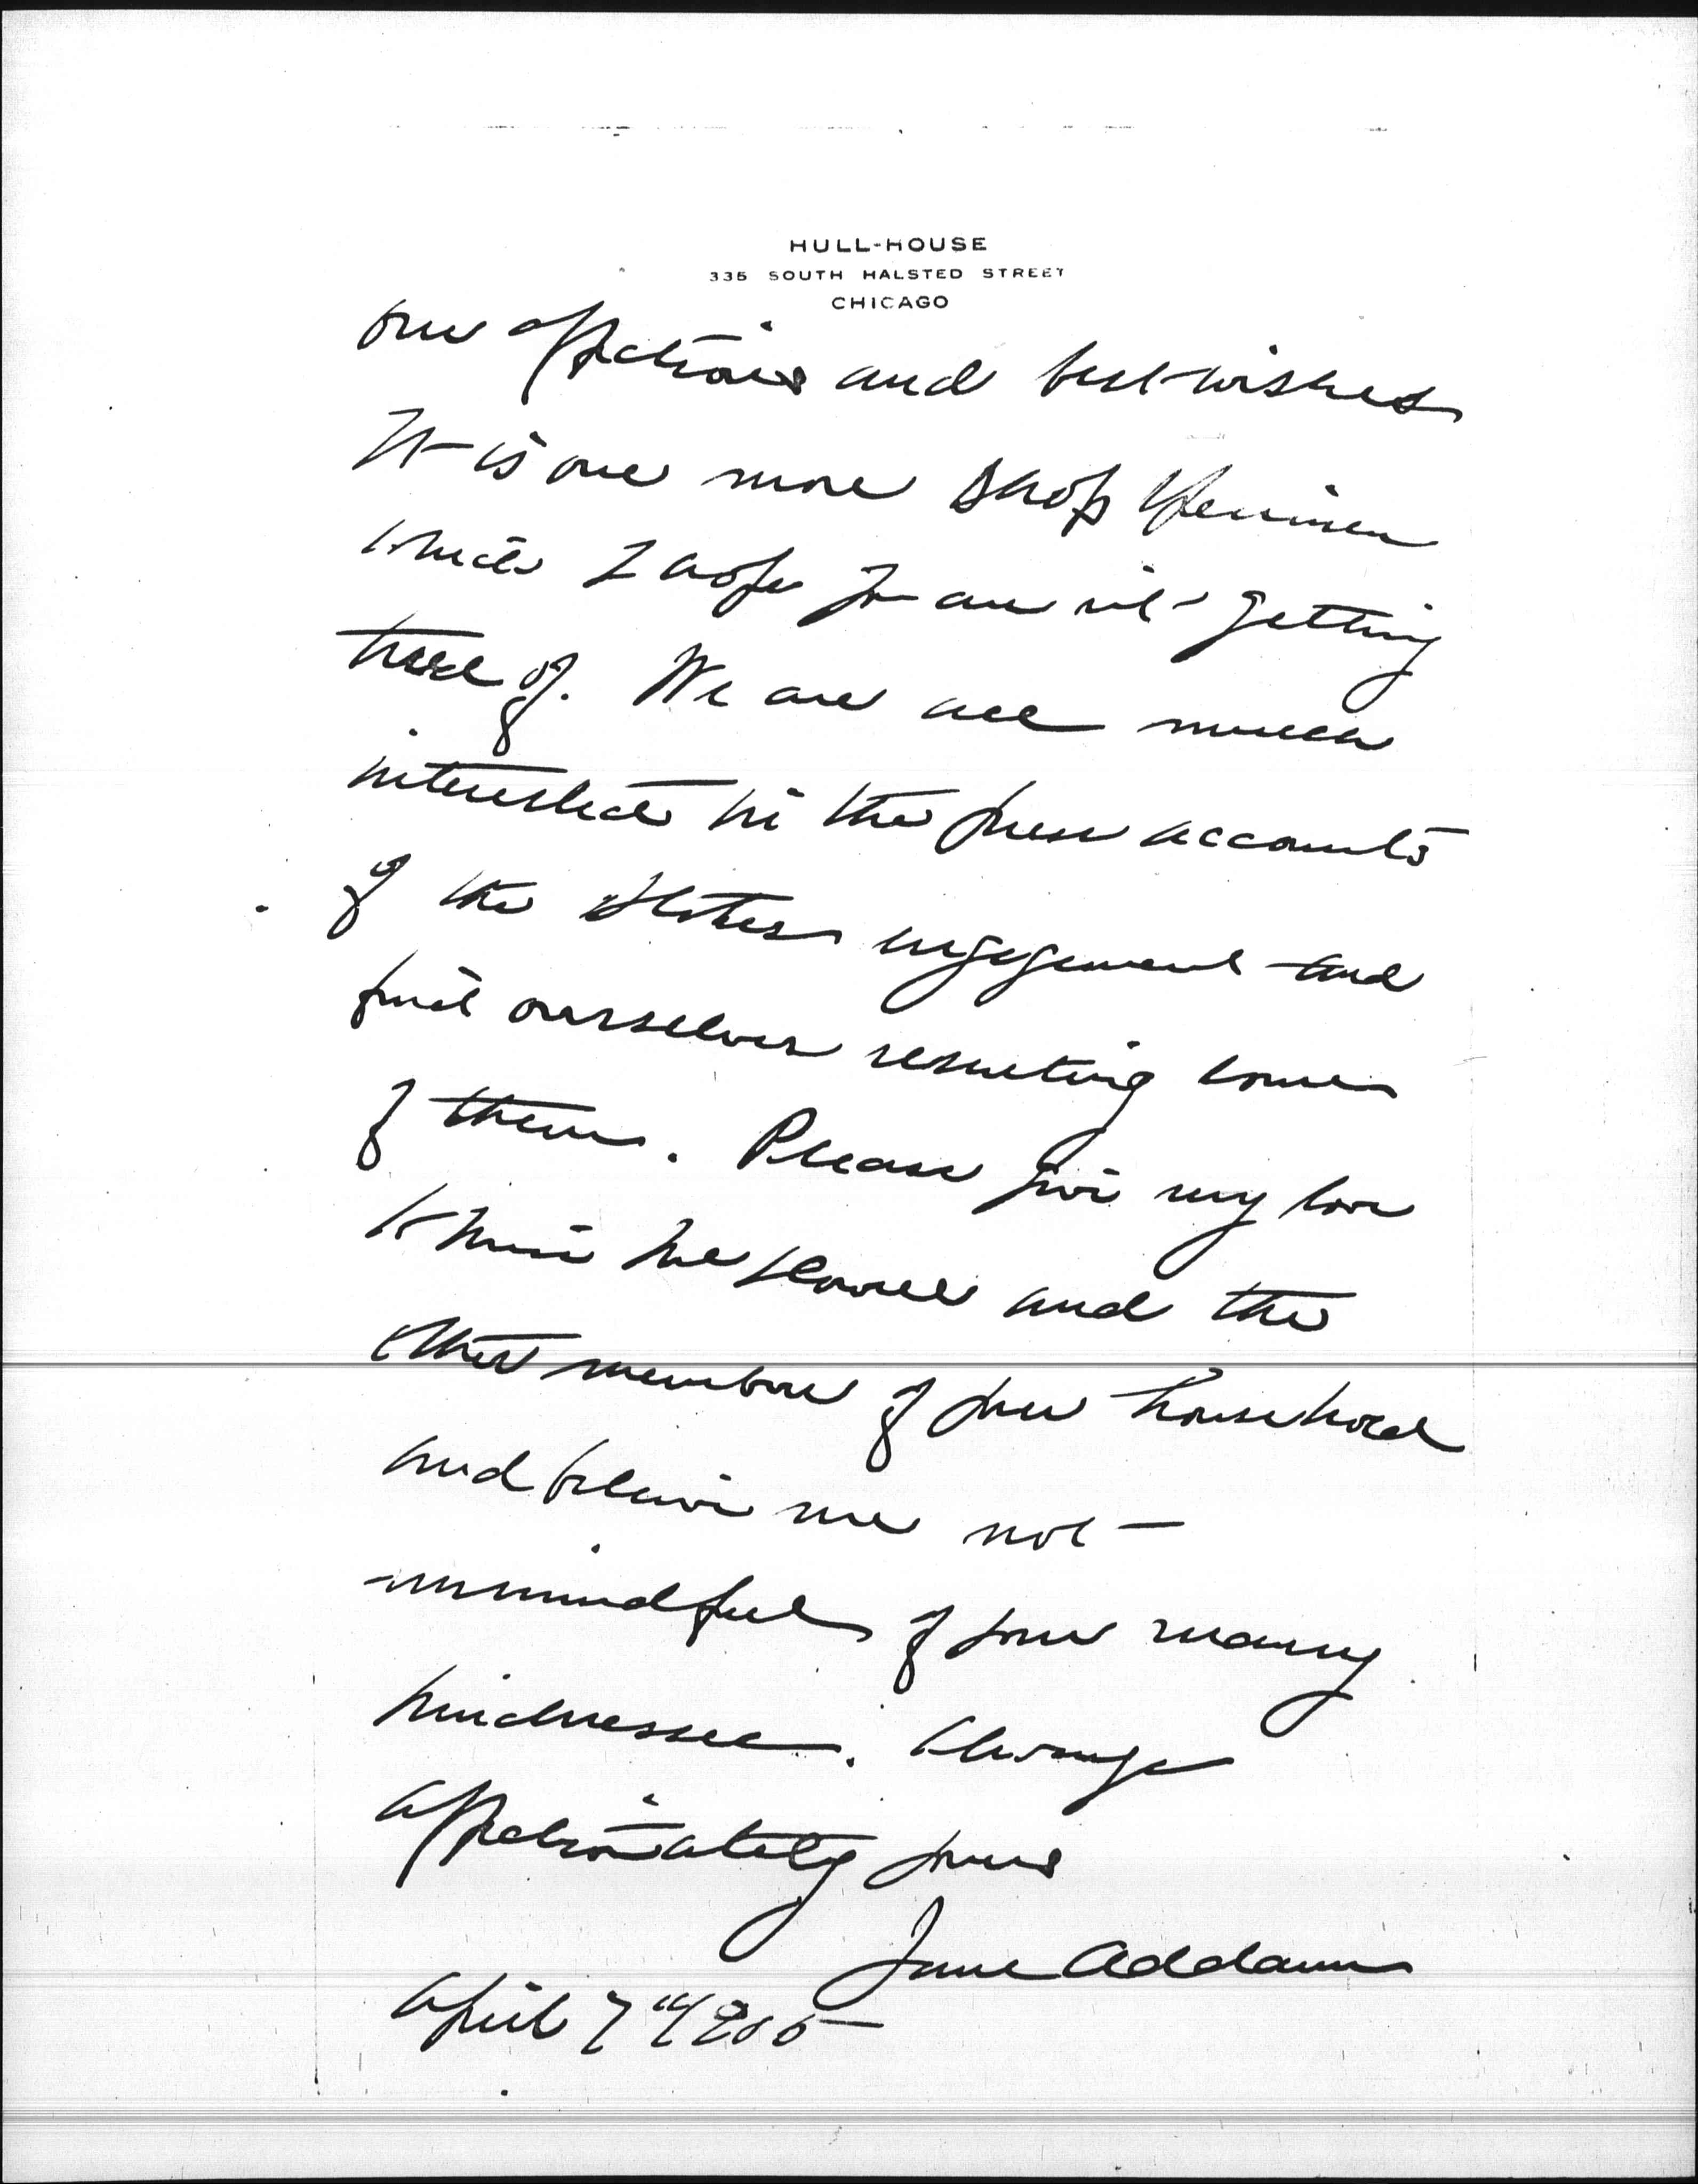 HULL-HOUSE
335 SOUTH HALSTED STREET
CHICAGO
our affections and best wishes
It is one more shop specimen
which I hope you are not getting
tired of. We are all much
interested in the press accounts
of the Stokes engagement and
find ourselves resenting some
of them. Please give my love
to Miss and the
other members of your household
and believe me not
unmindful of your many
kindnesses. Always
affectionately yours
Jane Addams
April 7" 1905